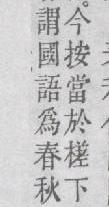 。今按當於槎下
謂國語為春秋